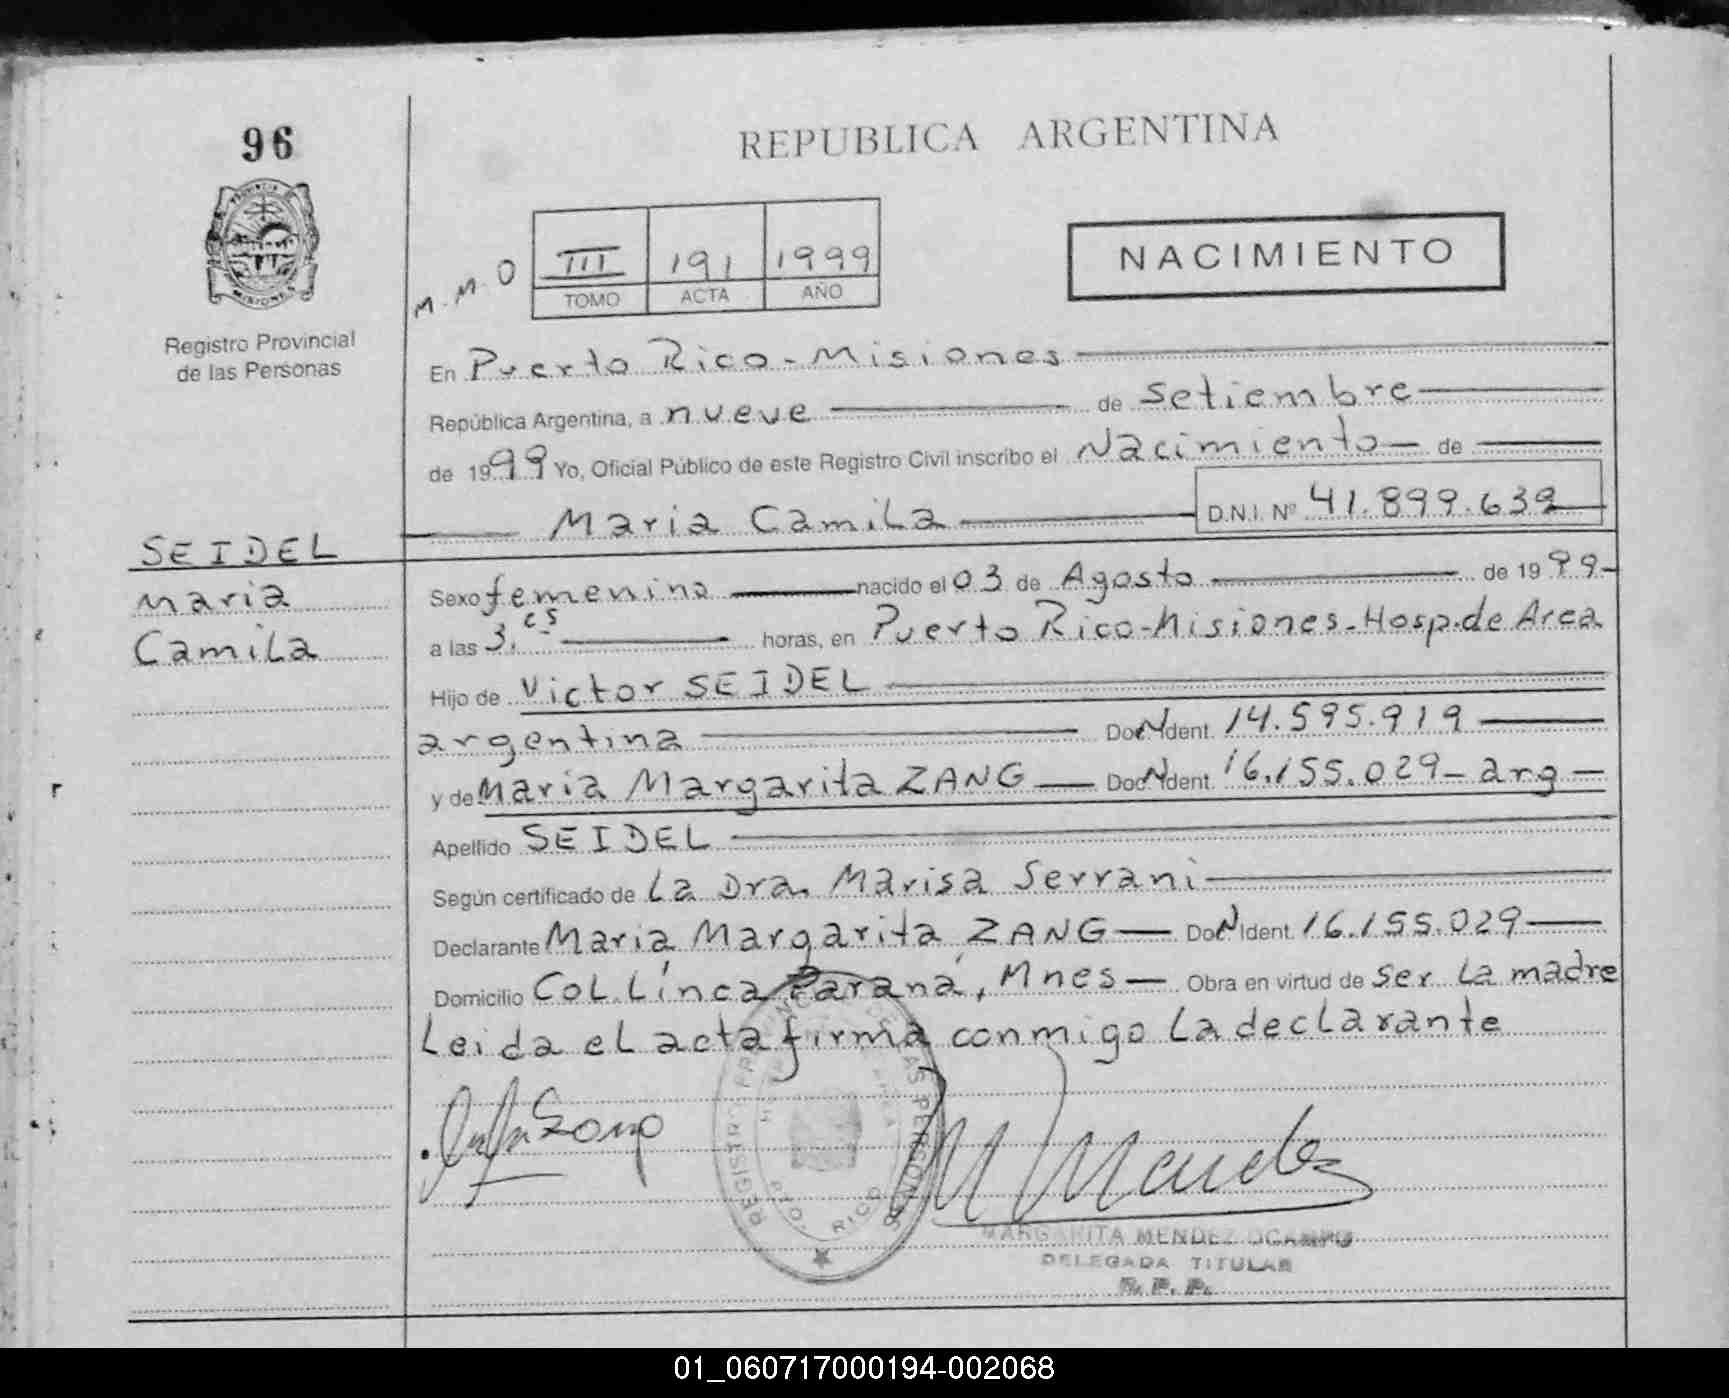 96
REPUBLICA ARGENTINA
PROVINCIA DE
MISIONES
Registro Provincial
de las Personas
M.M.O
III 191 1999
TOMO ACTA AÑO
NACIMIENTO
En Puerto Rico - Misiones
República Argentina, a nueve de setiembre
de 1999 Yo, Oficial Público de este Registro Civil inscribo el Nacimiento de
Maria Camila D.N.I. Nº 41.899.639
SEIDEL
Maria
Camila
Sexo femenino nacido el 03 de Agosto de 1999
a las 3.cs horas, en Puerto Rico-Misiones-Hosp.de Area
Hijo de Victor SEIDEL
argentina Doc N Ident. 14.595.919
y de Maria Margarita ZANG Doc N Ident. 16.155.029 - arg
Apellido SEIDEL
Según certificado de La Dra. Marisa Serrani
Declarante Maria Margarita ZANG Doc N Ident. 16.155.029
Domicilio Col. Línea Paraná, Mnes Obra en virtud de ser la madre
Leida el acta firma conmigo la declarante
REGISTRO PROVINCIAL DE LAS PERSONAS
PTO. RICO
M Mendez
MARGARITA MENDEZ OCAMPO
DELEGADA TITULAR
R. P. P.
01_060717000194-002068